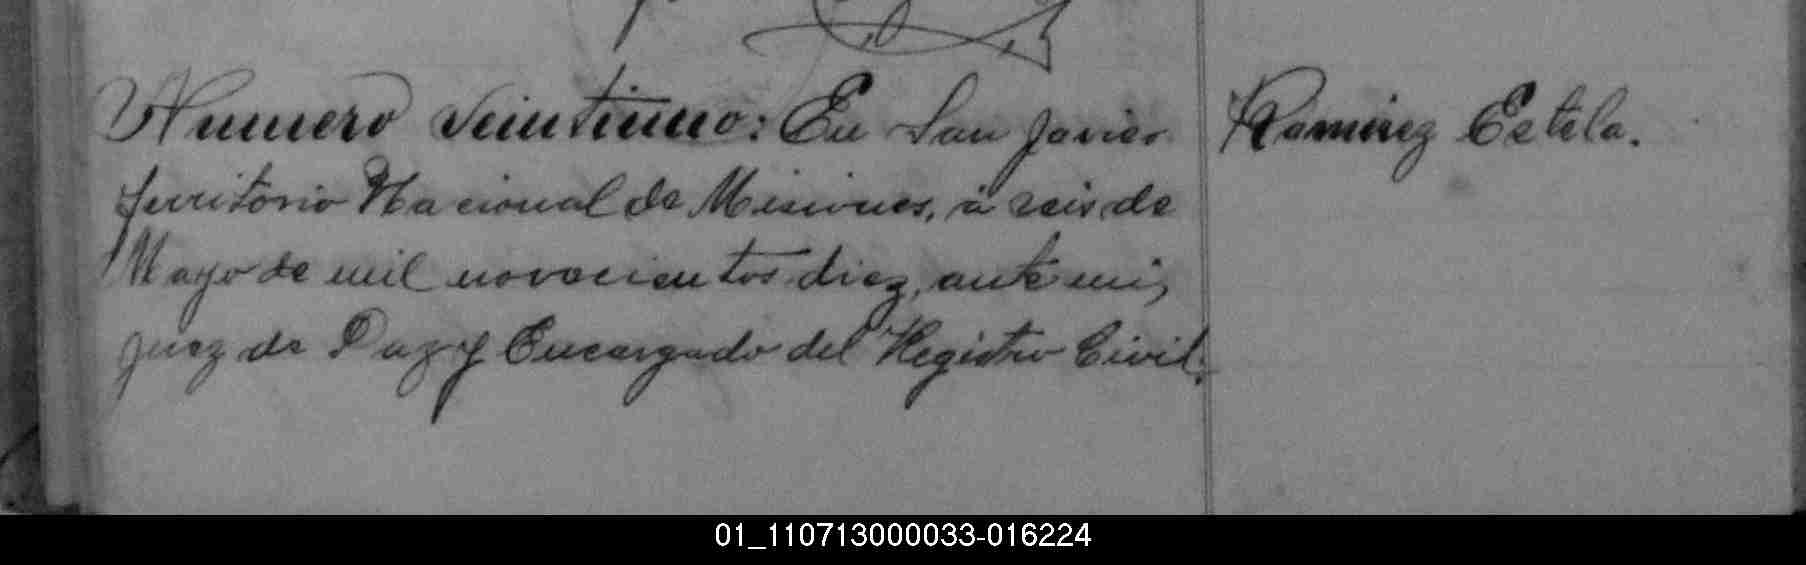 Numero veintiuno: En San Javier
Ramirez Estela.
territorio Nacional de Misiones, á seis de
Mayo de mil novecientos diez, ante mi,
Juez de Paz y Encargado del Registro Civil,
01_110713000033-016224